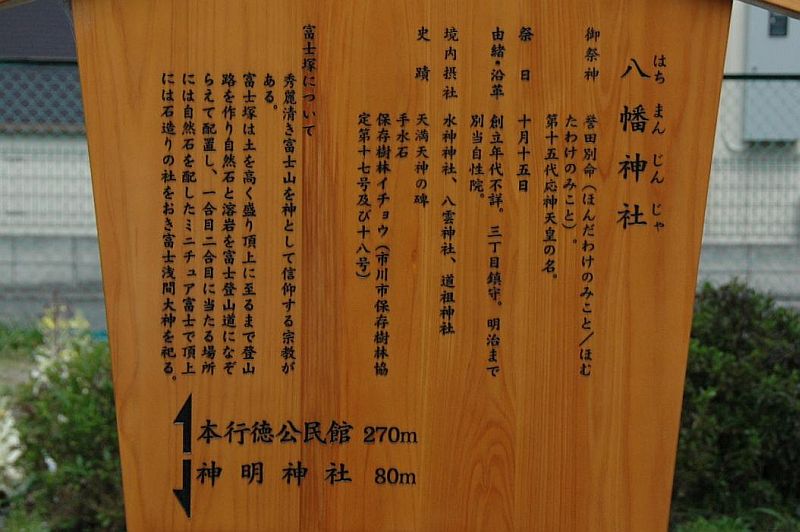 はちまんじんじゃ
八幡神社
御祭神 誉田別命（ほんだわけのみこと／ほむ
たわけのみこと）。
第十五代応神天皇の名。
祭日 十月十五日
由緒・沿革 創立年代不詳。三丁目鎮守。明治まで
別当自性院。
境内摂社 水神神社、八雲神社、道祖神社
史蹟 天満天神の碑
手水石
保存樹林イチョウ（市川市保存樹林協
定第十七号及び十八号）
富士塚について
秀麗清き富士山を神として信仰する宗教が
ある。
富士塚は土を高く盛り頂上に至るまで登山
路を作り自然石と溶岩を富士登山道になぞ
らえて配置し、一合目二合目に当たる場所
には自然石を配したミニチュア富士で頂上
には石造りの社をおき富士浅間大神を祀る。
本行徳公民館 270m
神明神社 80m